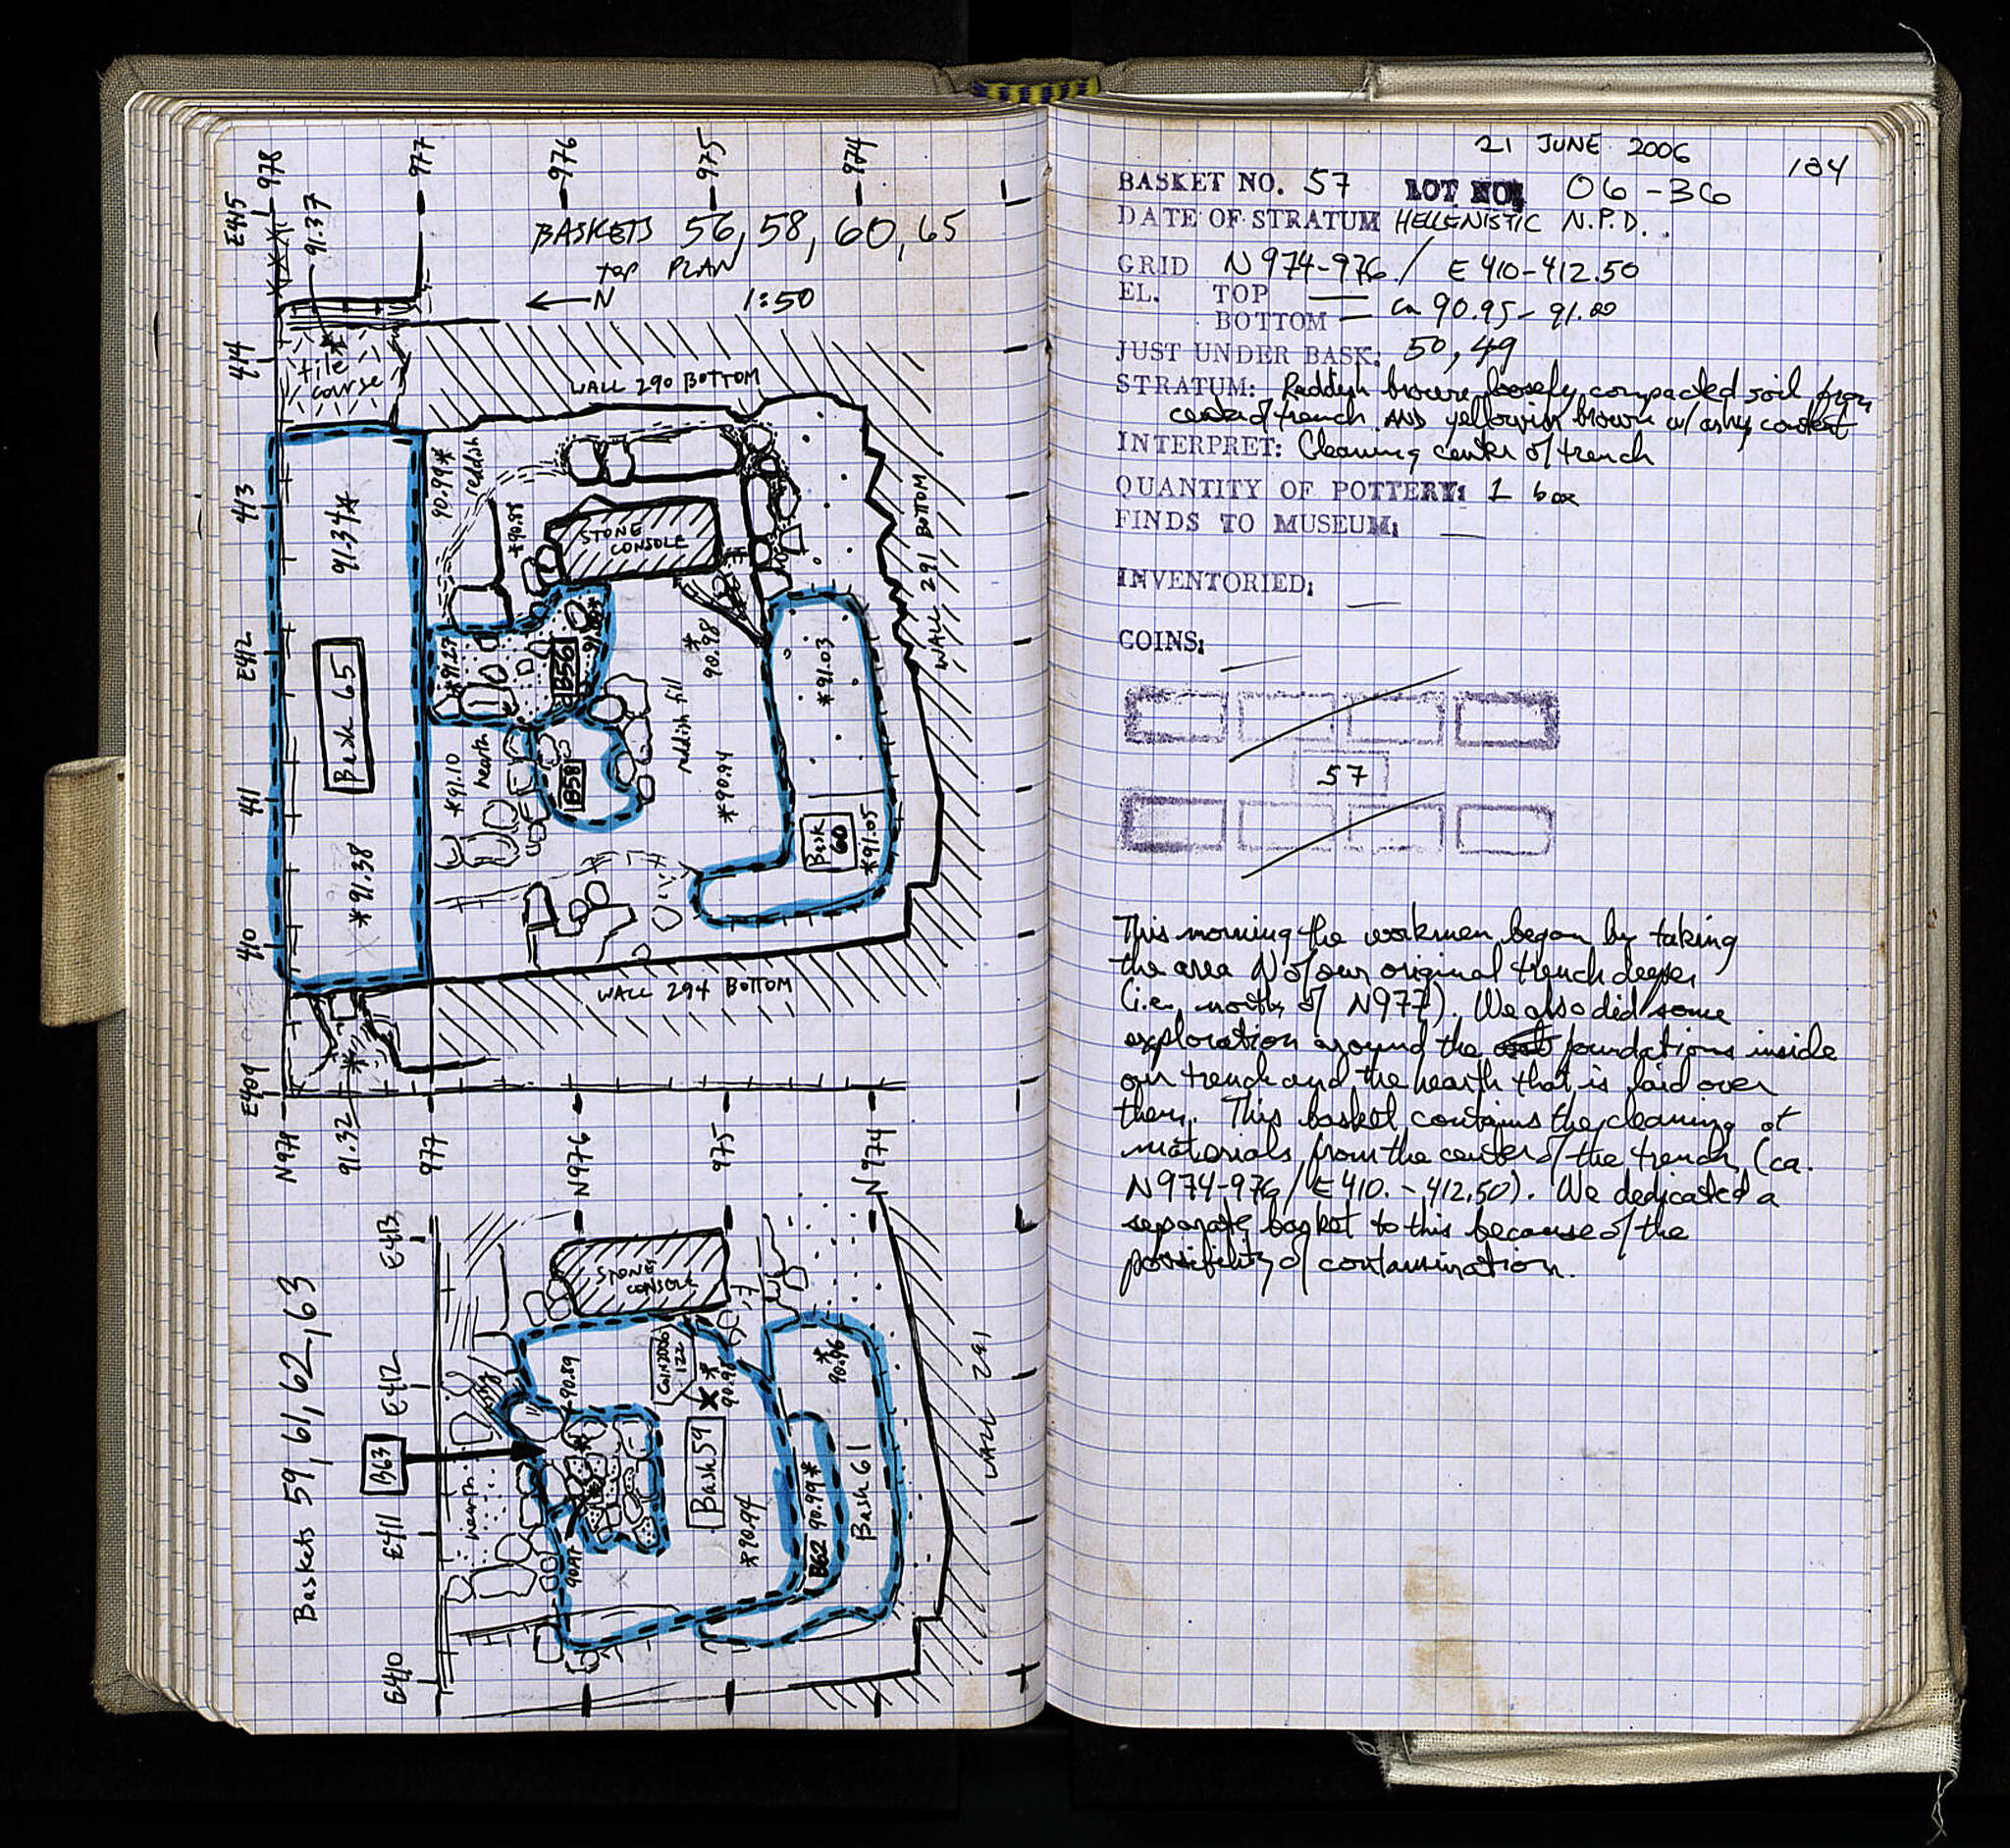 E415
978
91.37
977
976
975
974
BASKETS 56, 58, 60, 65
top PLAN
← N 1:50
E414
tile course
WALL 290 BOTTOM
E413
91.34*
90.99*
reddish
*90.95
STONE CONSOLE
WALL 291 BOTTOM
E412
Bask 65
*91.27
B56
*90.98
*91.03
reddish fill
E411
*91.10
hearth
B58
*90.94
Bask 60
*91.05
E410
*91.38
WALL 294 BOTTOM
E409
N 978
91.32
977
N976
975
N974
Baskets 59, 61, 62, 63
E413
STONE CONSOLE
E412
90.89
Coin 2006 122
90.96
WALL 291
B63
E411
hearth
Bask 59
*90.94
B62 90.99*
Bask 61
E410
21 JUNE 2006
184
BASKET NO. 57 LOT NO. 06-36
DATE OF STRATUM HELLENISTIC N.P.D.
GRID N 974-976 / E 410-412.50
EL. TOP —
BOTTOM — ca 90.95 - 91.00
JUST UNDER BASK: 50, 49
STRATUM: Reddish brown loosely compacted soil from
center of trench AND yellowish brown w/ ashy content
INTERPRET: Cleaning center of trench
QUANTITY OF POTTERY: 1 box
FINDS TO MUSEUM: —
INVENTORIED: —
COINS: —
57
This morning the workmen began by taking
the area N of our original trench deeper
(i.e. north of N977). We also did some
exploration around the foundations inside
our trench and the hearth that is laid over
them. This basket contains the cleaning of
materials from the center of the trench (ca.
N974-976/E410.-412.50). We dedicated a
separate basket to this because of the
possibility of contamination.